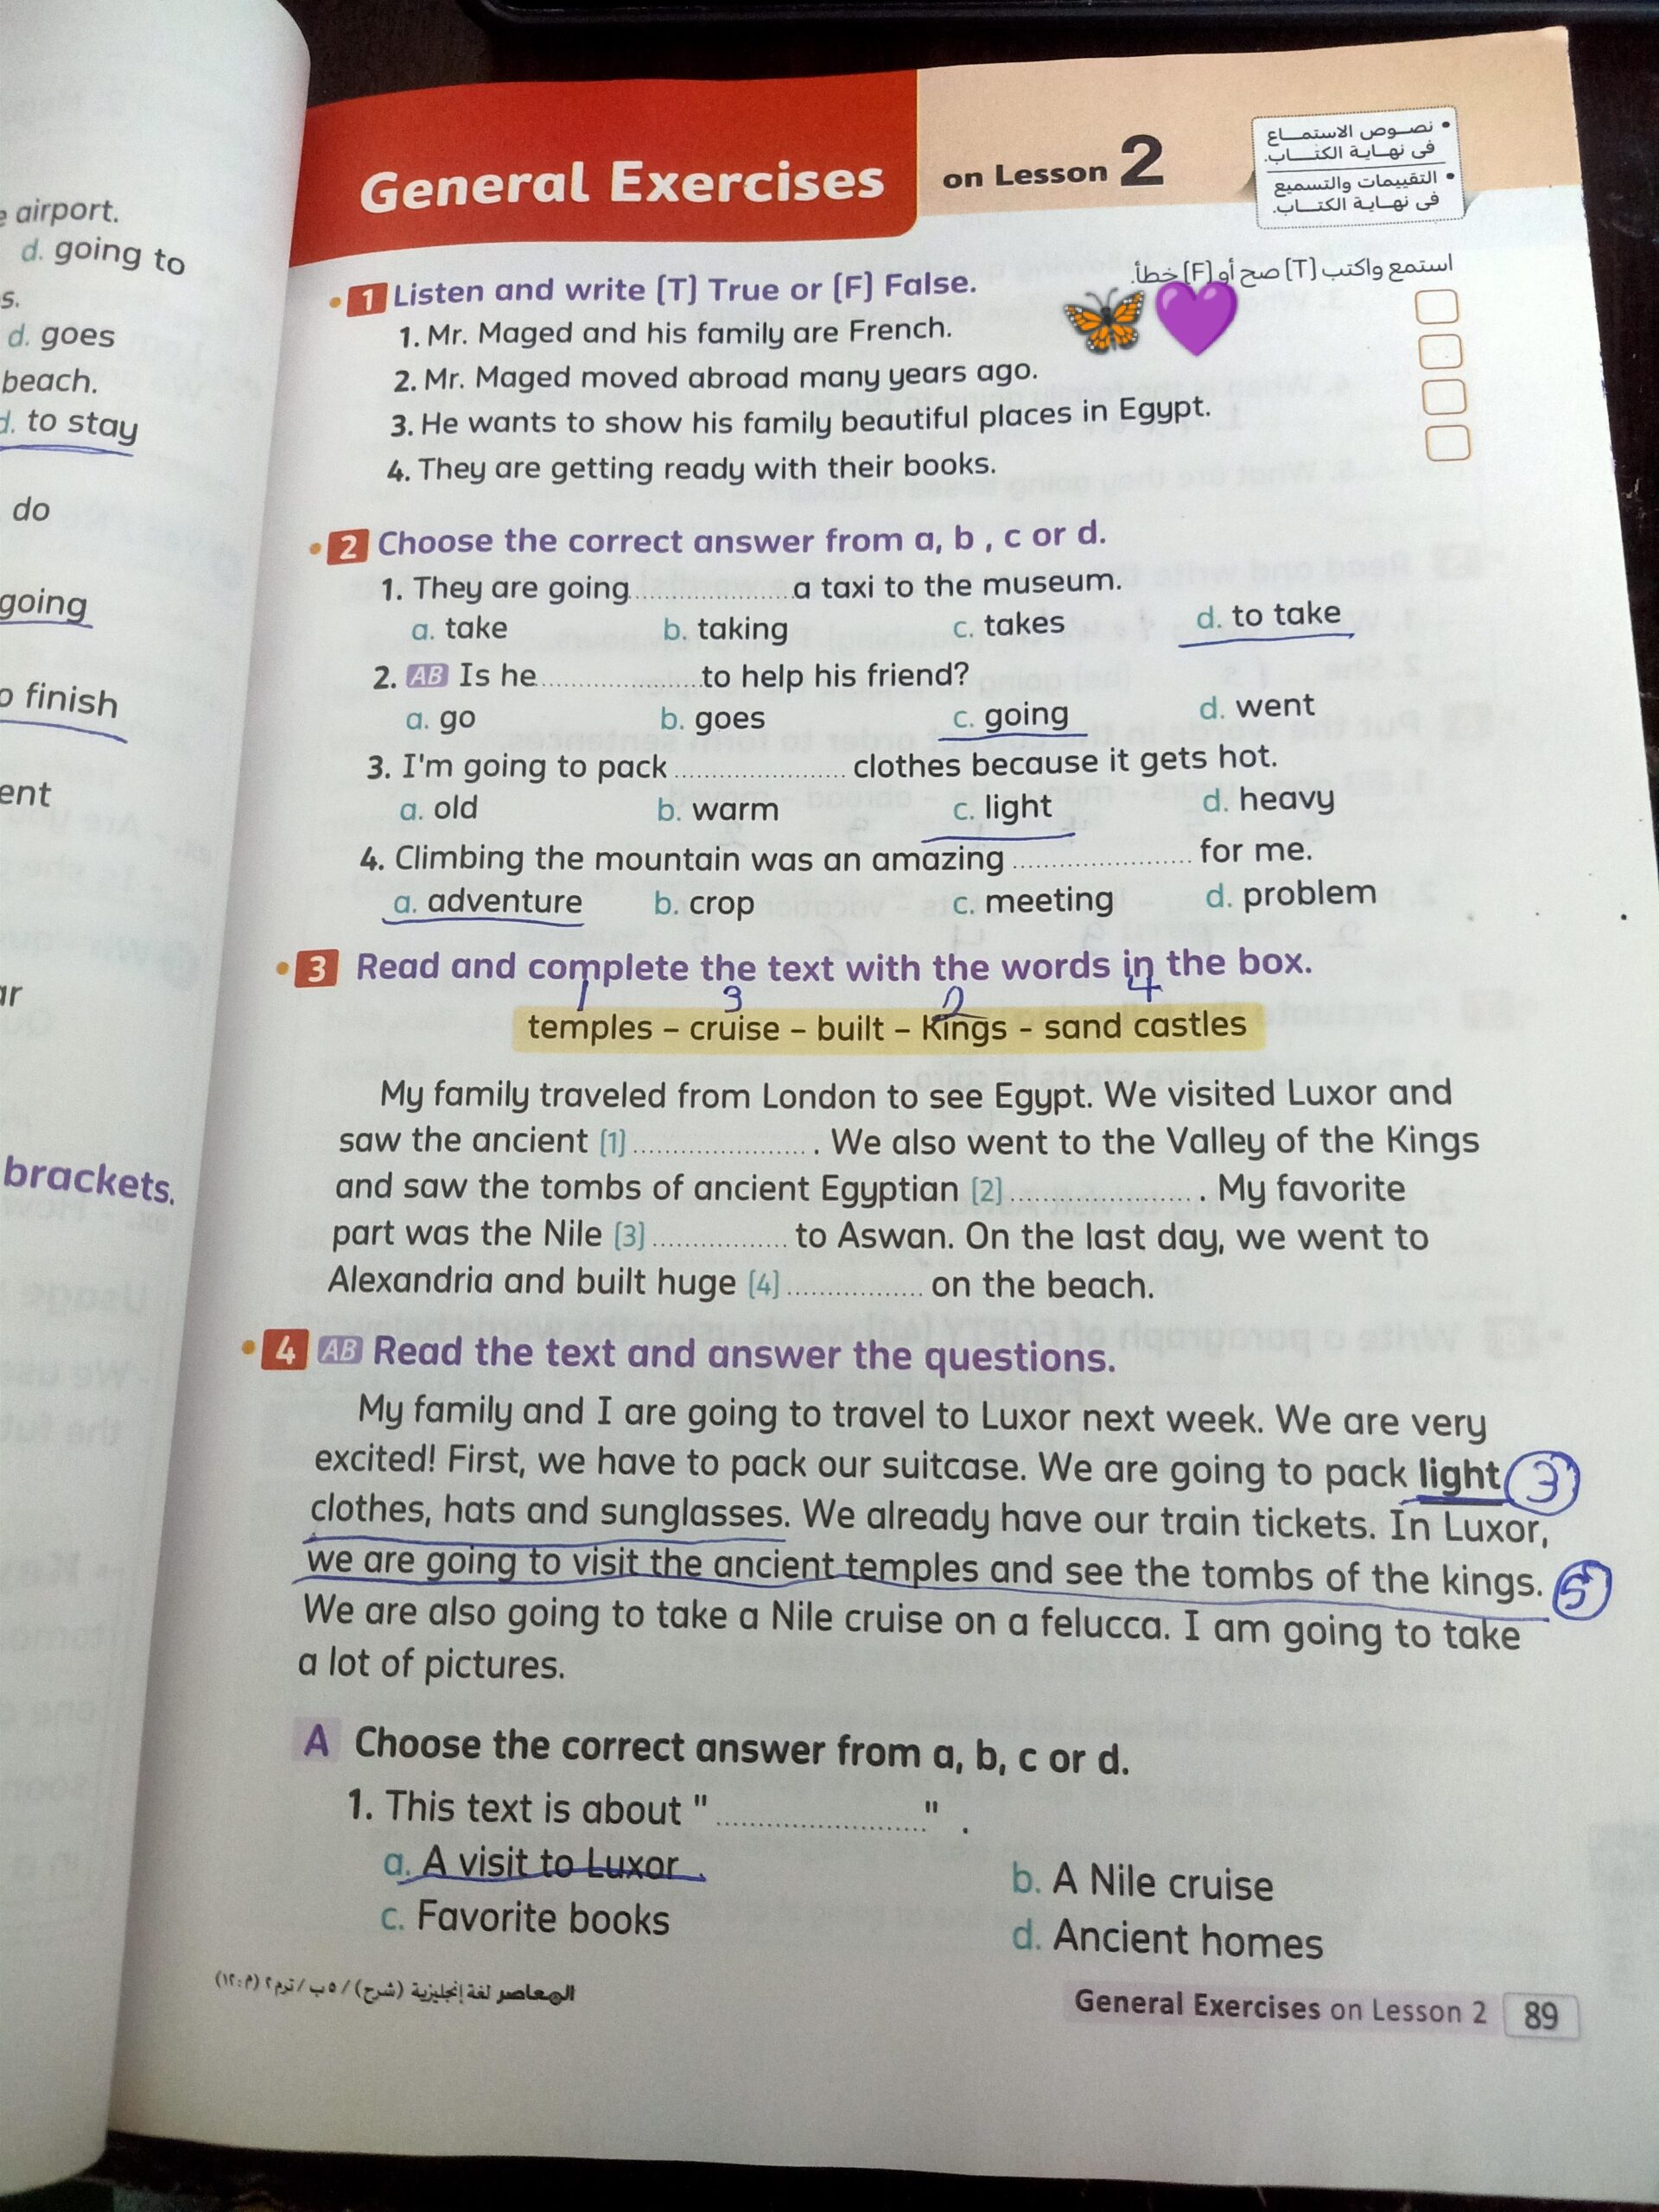 e airport.
d. going to
s.
d. goes
beach.
d. to stay
do
going
o finish
ent
ar
brackets.
General Exercises on Lesson 2
• نصوص الاستماع
فى نهاية الكتاب.
• التقييمات والتسميع
فى نهاية الكتاب.
1 Listen and write (T) True or (F) False.
استمع واكتب (T) صح أو (F) خطأ.
1. Mr. Maged and his family are French.
2. Mr. Maged moved abroad many years ago.
3. He wants to show his family beautiful places in Egypt.
4. They are getting ready with their books.
2 Choose the correct answer from a, b , c or d.
1. They are going.................a taxi to the museum.
a. take b. taking c. takes d. to take
2. AB Is he.................to help his friend?
a. go b. goes c. going d. went
3. I'm going to pack ................. clothes because it gets hot.
a. old b. warm c. light d. heavy
4. Climbing the mountain was an amazing ................. for me.
a. adventure b. crop c. meeting d. problem
3 Read and complete the text with the words in the box.
1 3 2 4
temples – cruise – built – Kings - sand castles
My family traveled from London to see Egypt. We visited Luxor and
saw the ancient (1) ................. . We also went to the Valley of the Kings
and saw the tombs of ancient Egyptian (2) ................. . My favorite
part was the Nile (3) ................. to Aswan. On the last day, we went to
Alexandria and built huge (4) ................. on the beach.
4 AB Read the text and answer the questions.
My family and I are going to travel to Luxor next week. We are very
excited! First, we have to pack our suitcase. We are going to pack light 3
clothes, hats and sunglasses. We already have our train tickets. In Luxor,
we are going to visit the ancient temples and see the tombs of the kings. 5
We are also going to take a Nile cruise on a felucca. I am going to take
a lot of pictures.
A Choose the correct answer from a, b, c or d.
1. This text is about " ................. " .
a. A visit to Luxor b. A Nile cruise
c. Favorite books d. Ancient homes
المعاصر لغة إنجليزية (شرح) / ٥ ب / ترم ٢ (م: ١٢)
General Exercises on Lesson 2 89